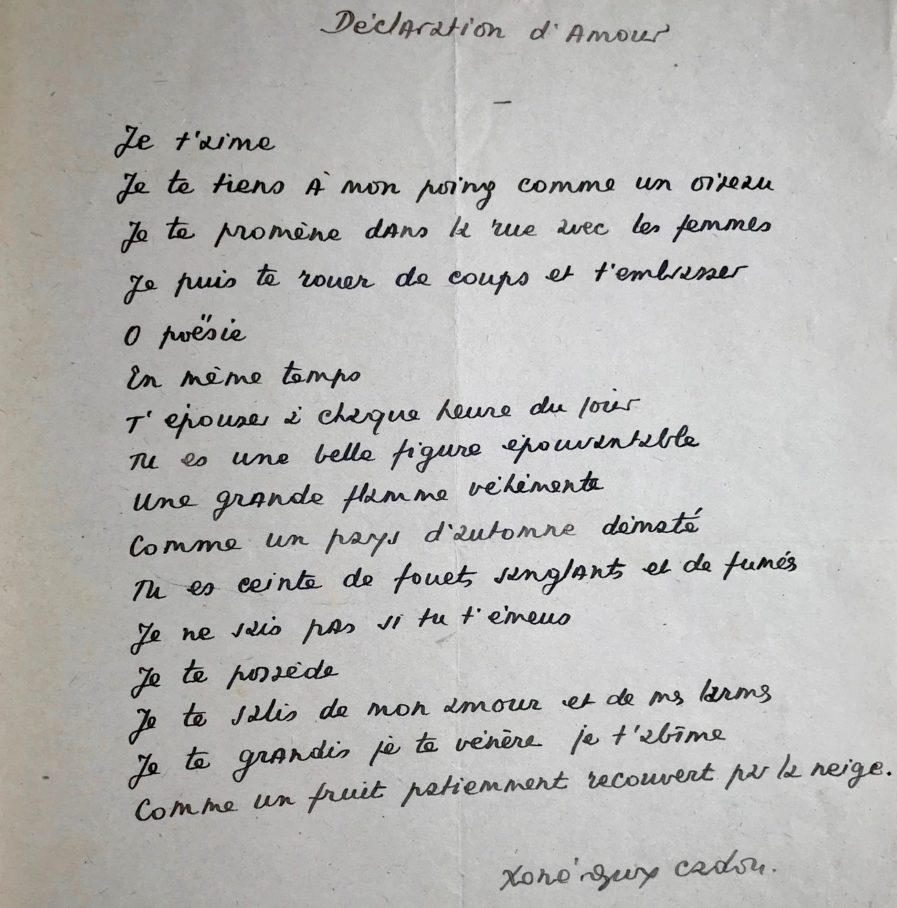 Déclaration d'Amour
Je t'aime
Je te tiens à mon poing comme un oiseau
Je te promène dans la rue avec les femmes
Je puis te rouer de coups et t'embrasser
O poësie
En même temps
T'épouser à chaque heure du jour
Tu es une belle figure épouvantable
Une grande flamme véhémente
Comme un pays d'automne démâté
Tu es ceinte de fouets sanglants et de fumés
Je ne sais pas si tu t'émeus
Je te possède
Je te salis de mon amour et de mes larmes
Je te grandis je te vénère je t'abîme
Comme un fruit patiemment recouvert par la neige.
René Guy Cadou.